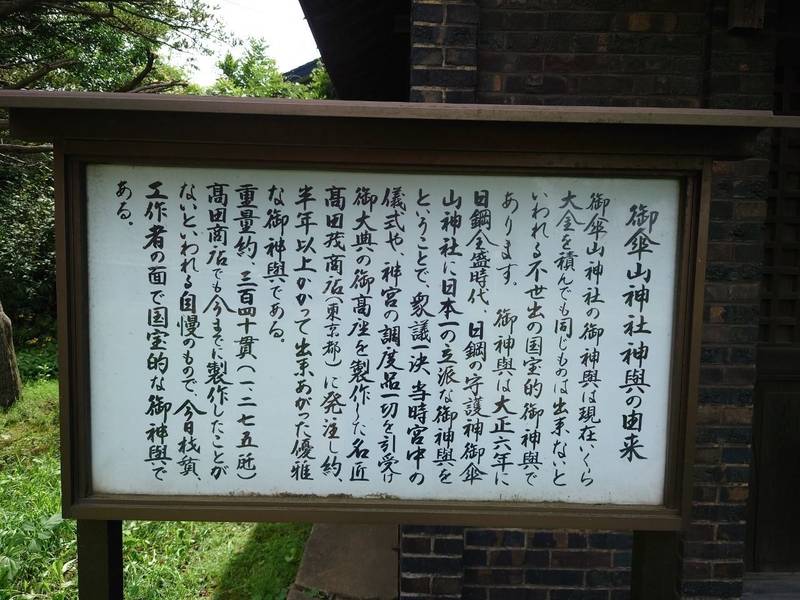 御傘山神社神輿の由来
御傘山神社の御神輿は現在いくら
大金を積んでも同じものは出来ないと
いわれる不世出の国宝的御神輿で
あります。 御神輿は大正六年に
日鋼全盛時代、日鋼の守護神御傘
山神社に日本一の立派な御神輿を
ということで、衆議一決、当時宮中の
儀式や、神宮の調度品一切を引受け
御大典の御高座を製作した名匠
髙田茂商店(東京都)に発注し約、
半年以上かかって出来あがった優雅
な御神輿である。
重量約、三百四十貫(一、二七五瓩)
髙田商店でも今までに製作したことが
ないといわれる自慢のもので、今日材質、
工作者の面で国宝的な御神輿で
ある。